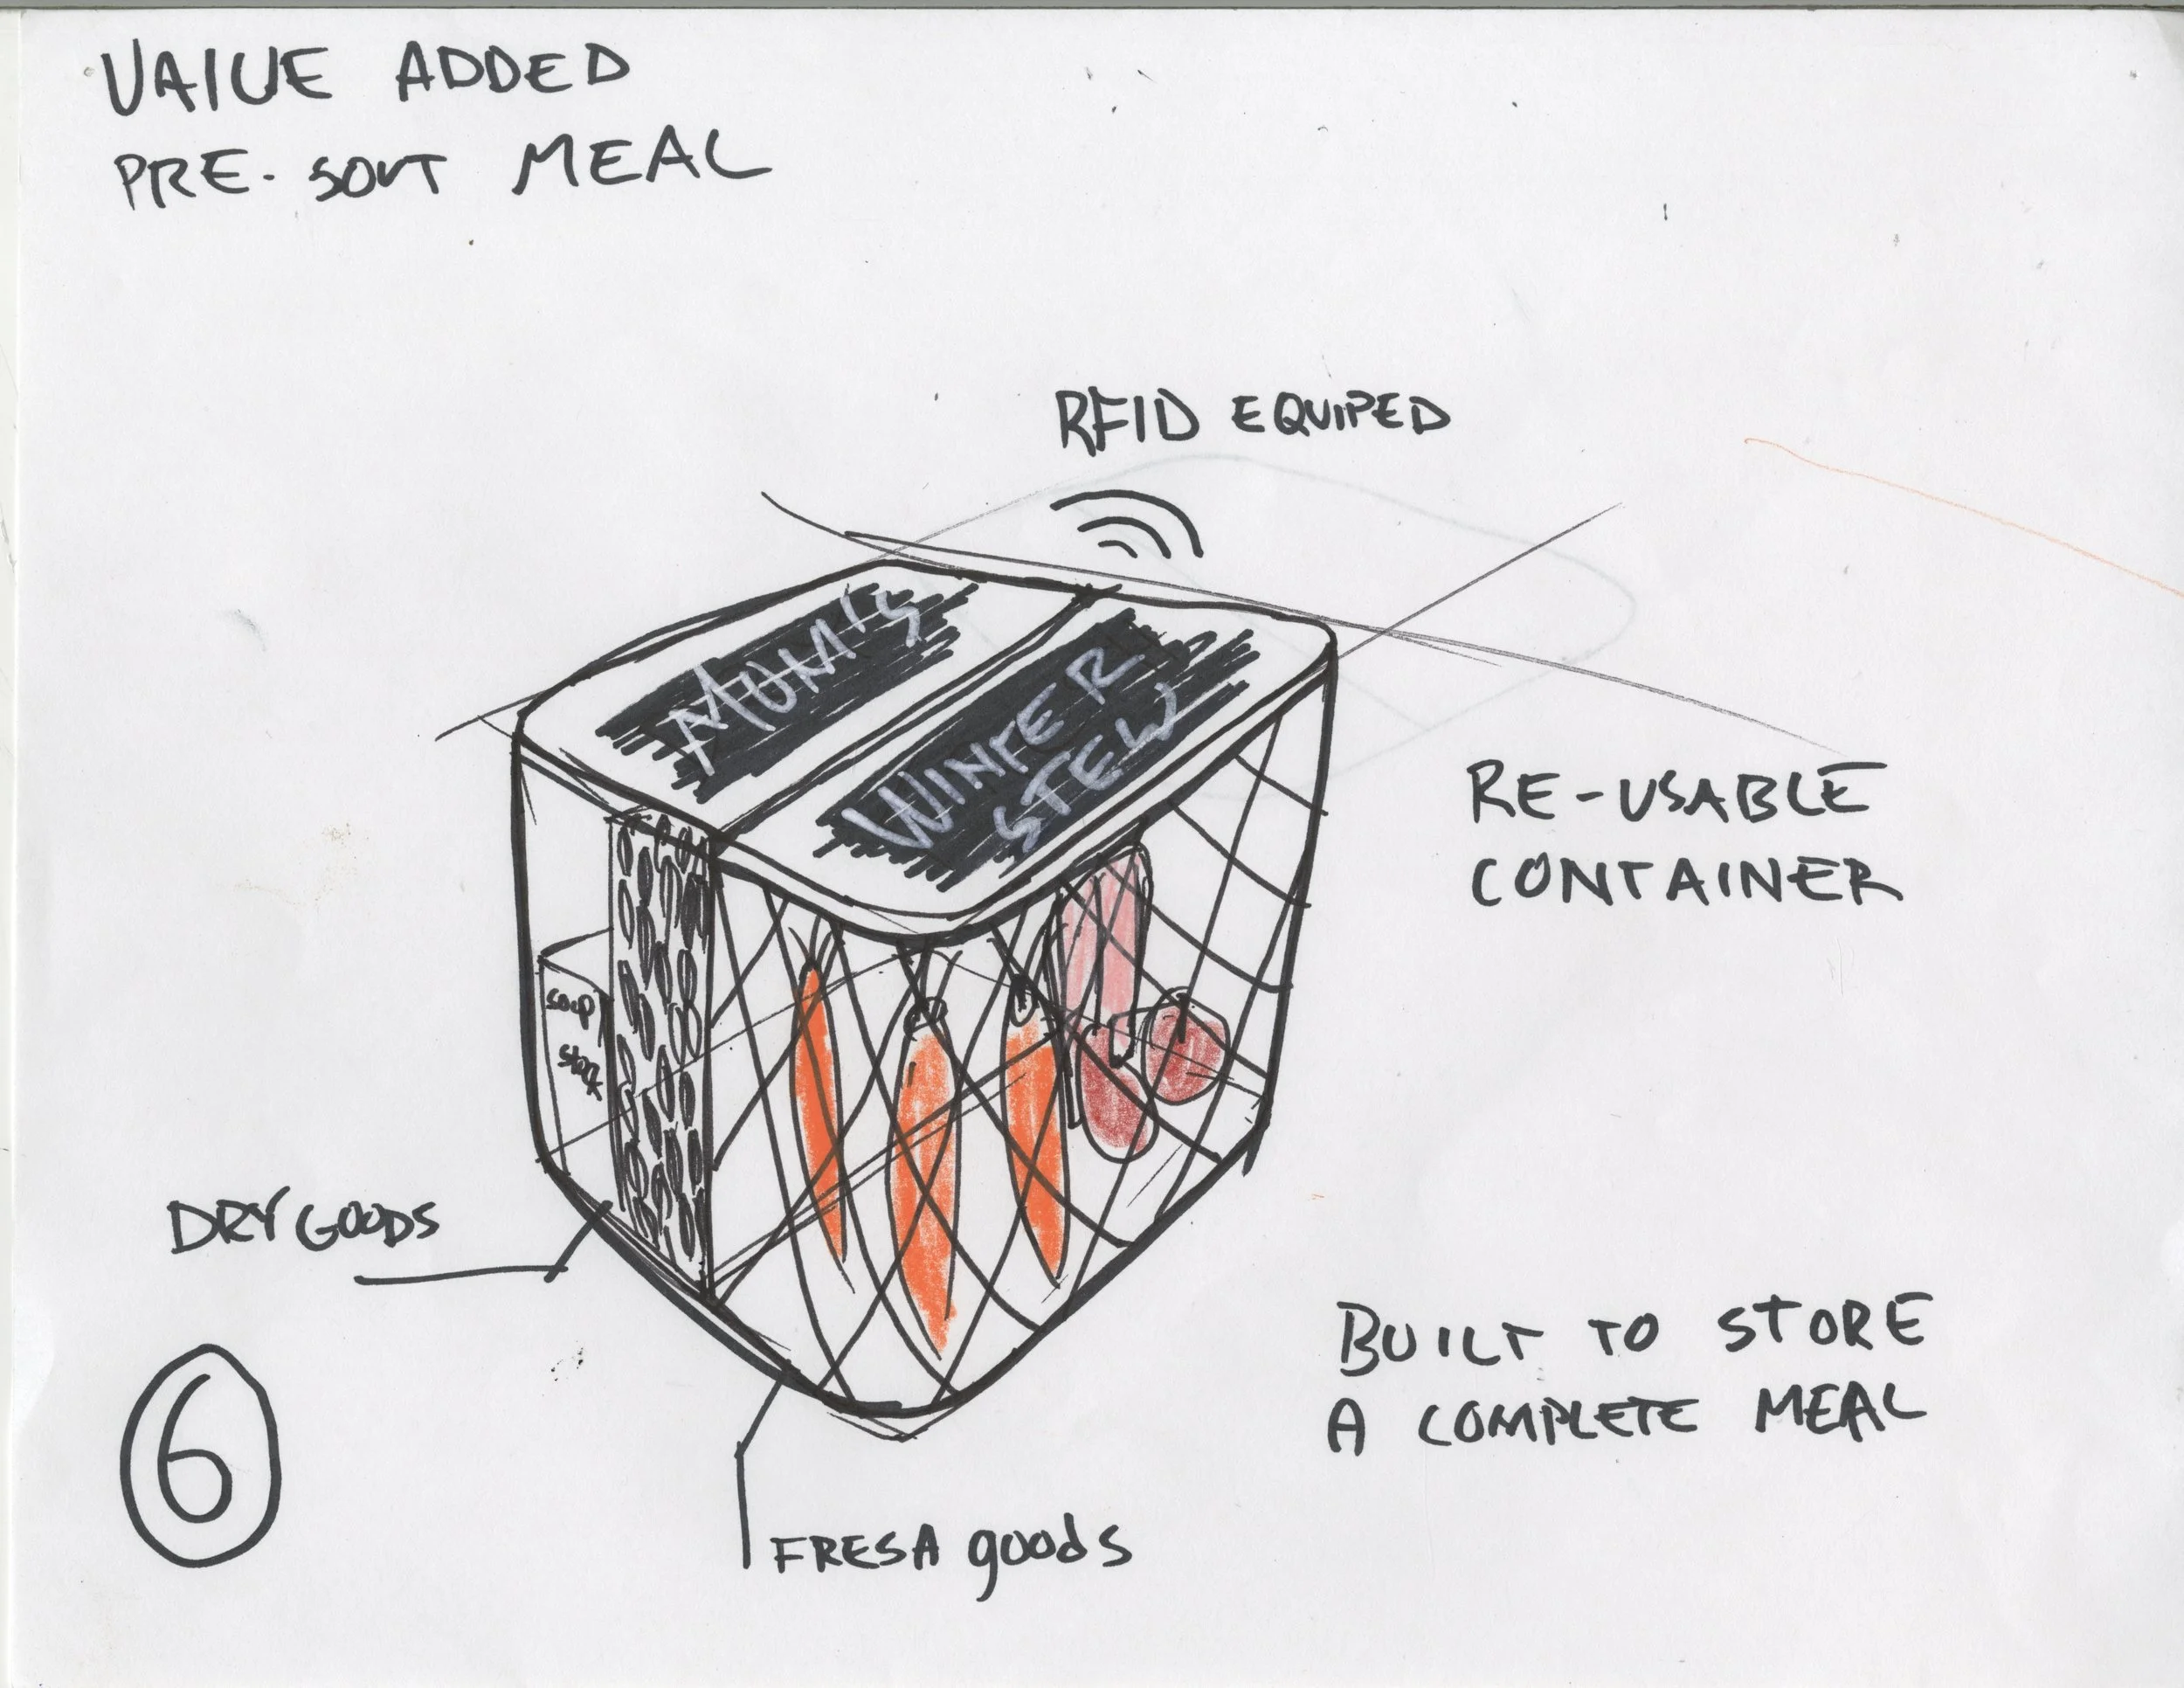 VALUE ADDED
PRE-SORT MEAL
RFID EQUIPED
MUM'S
WINTER
STEW
RE-USABLE
CONTAINER
SOUP
DRY GOODS
BUILT TO STORE
A COMPLETE MEAL
6
FRESH goods